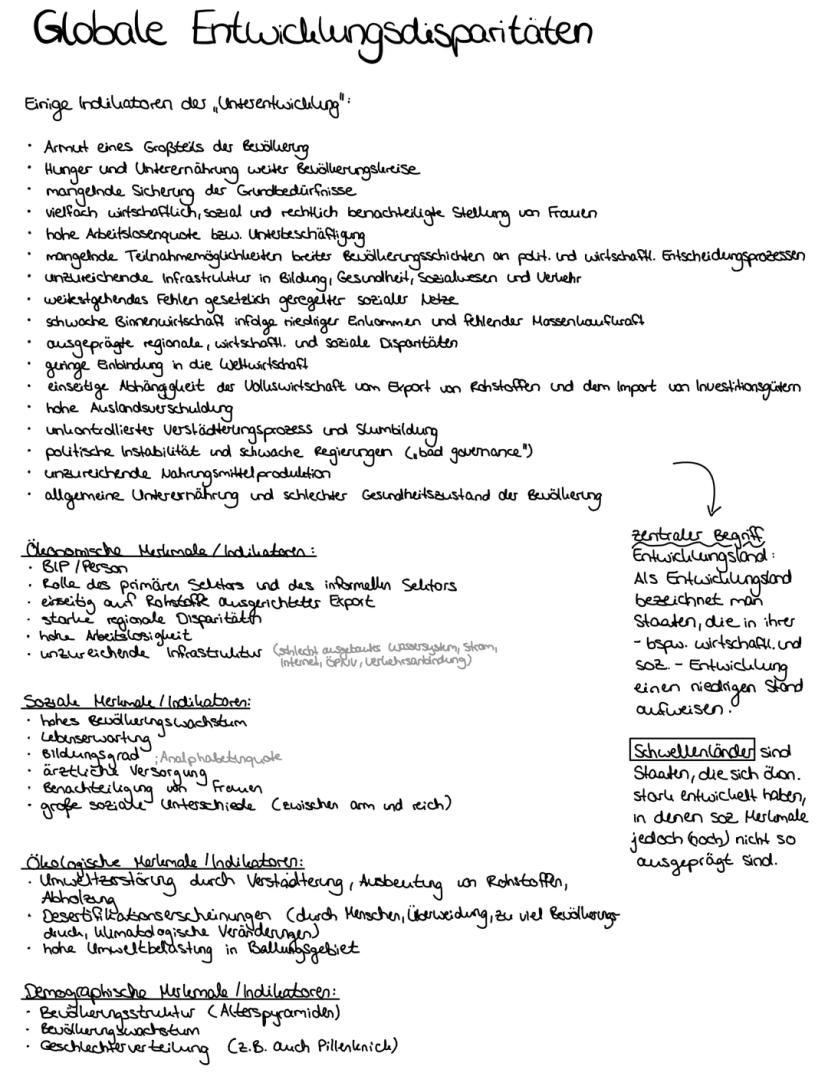 Globale Entwicklungsdisparitäten
Einige Indikatoren der „Unterentwicklung":
· Armut eines Großteils der Bevölkerung
· Hunger und Unterernährung weiter Bevölkerungskreise
· mangelnde Sicherung der Grundbedürfnisse
· vielfach wirtschaftlich, sozial und rechtlich benachteiligte Stellung von Frauen
· hohe Arbeitslosenquote bzw. Unterbeschäftigung
· mangelnde Teilnahmemöglichkeiten breiter Bevölkerungsschichten an polit. und wirtschaftl. Entscheidungsprozessen
· unzureichende Infrastruktur in Bildung, Gesundheit, Sozialwesen und Verkehr
· weitestgehendes Fehlen gesetzlich geregelter sozialer Netze
· schwache Binnenwirtschaft infolge niedriger Einkommen und fehlender Massenkaufkraft
· ausgeprägte regionale, wirtschaftl. und soziale Disparitäten
· geringe Einbindung in die Weltwirtschaft
· einseitige Abhängigkeit der Volkswirtschaft vom Export von Rohstoffen und dem Import von Investitionsgütern
· hohe Auslandsverschuldung
· unkontrollierter Verstädterungsprozess und Slumbildung
· politische Instabilität und schwache Regierungen („bad governance")
· unzureichende Nahrungsmittelproduktion
· allgemeine Unterernährung und schlechter Gesundheitszustand der Bevölkerung
Ökonomische Merkmale / Indikatoren:
· BIP / Person
· Rolle des primären Sektors und des informellen Sektors
· einseitig auf Rohstoffe ausgerichteter Export
· starke regionale Disparitäten
· hohe Arbeitslosigkeit
· unzureichende Infrastruktur (schlecht ausgebautes Wassersystem, Strom,
Internet, ÖPNV, Verkehrsanbindung)
Soziale Merkmale / Indikatoren:
· hohes Bevölkerungswachstum
· Lebenserwartung
· Bildungsgrad ; Analphabetenquote
· ärztliche Versorgung
· Benachteiligung von Frauen
· große soziale Unterschiede (zwischen arm und reich)
Ökologische Merkmale / Indikatoren:
· Umweltzerstörung durch Verstädterung, Ausbeutung von Rohstoffen,
Abholzung
· Desertifikationserscheinungen (durch Menschen, Überweidung, zu viel Bevölkerungs-
druck, klimatologische Veränderungen)
· hohe Umweltbelastung in Ballungsgebiet
Demographische Merkmale / Indikatoren:
· Bevölkerungsstruktur (Alterspyramiden)
· Bevölkerungswachstum
· Geschlechterverteilung (z.B. auch Pillenknick)
zentraler Begriff
Entwicklungsland:
Als Entwicklungsland
bezeichnet man
Staaten, die in ihrer
- bspw. wirtschaftl. und
soz. - Entwicklung
einen niedrigen Stand
aufweisen.
Schwellenländer sind
Staaten, die sich ökon.
stark entwickelt haben,
in denen soz Merkmale
jedoch (noch) nicht so
ausgeprägt sind.